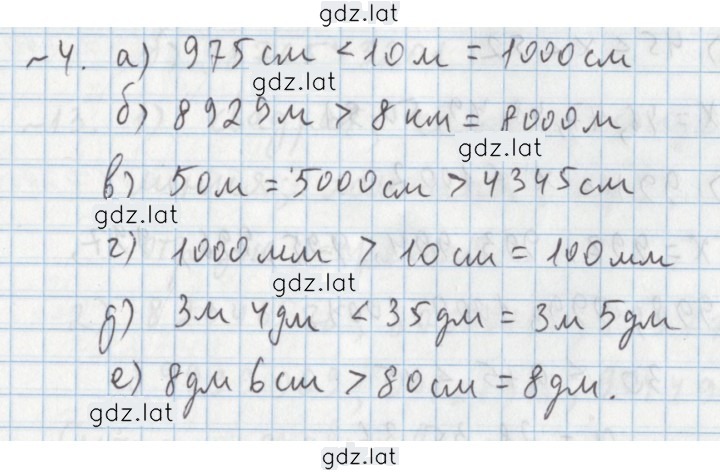 gdz.lat
~4. а) 975 см < 10 м = 1000 см
gdz.lat
б) 8929 м > 8 км = 8000 м
gdz.lat
в) 50 м = 5000 см > 4345 см
gdz.lat
г) 1000 мм > 10 см = 100 мм
gdz.lat
д) 3 м 4 дм < 35 дм = 3 м 5 дм
е) 8 дм 6 см > 80 см = 8 дм.
gdz.lat
gdz.lat